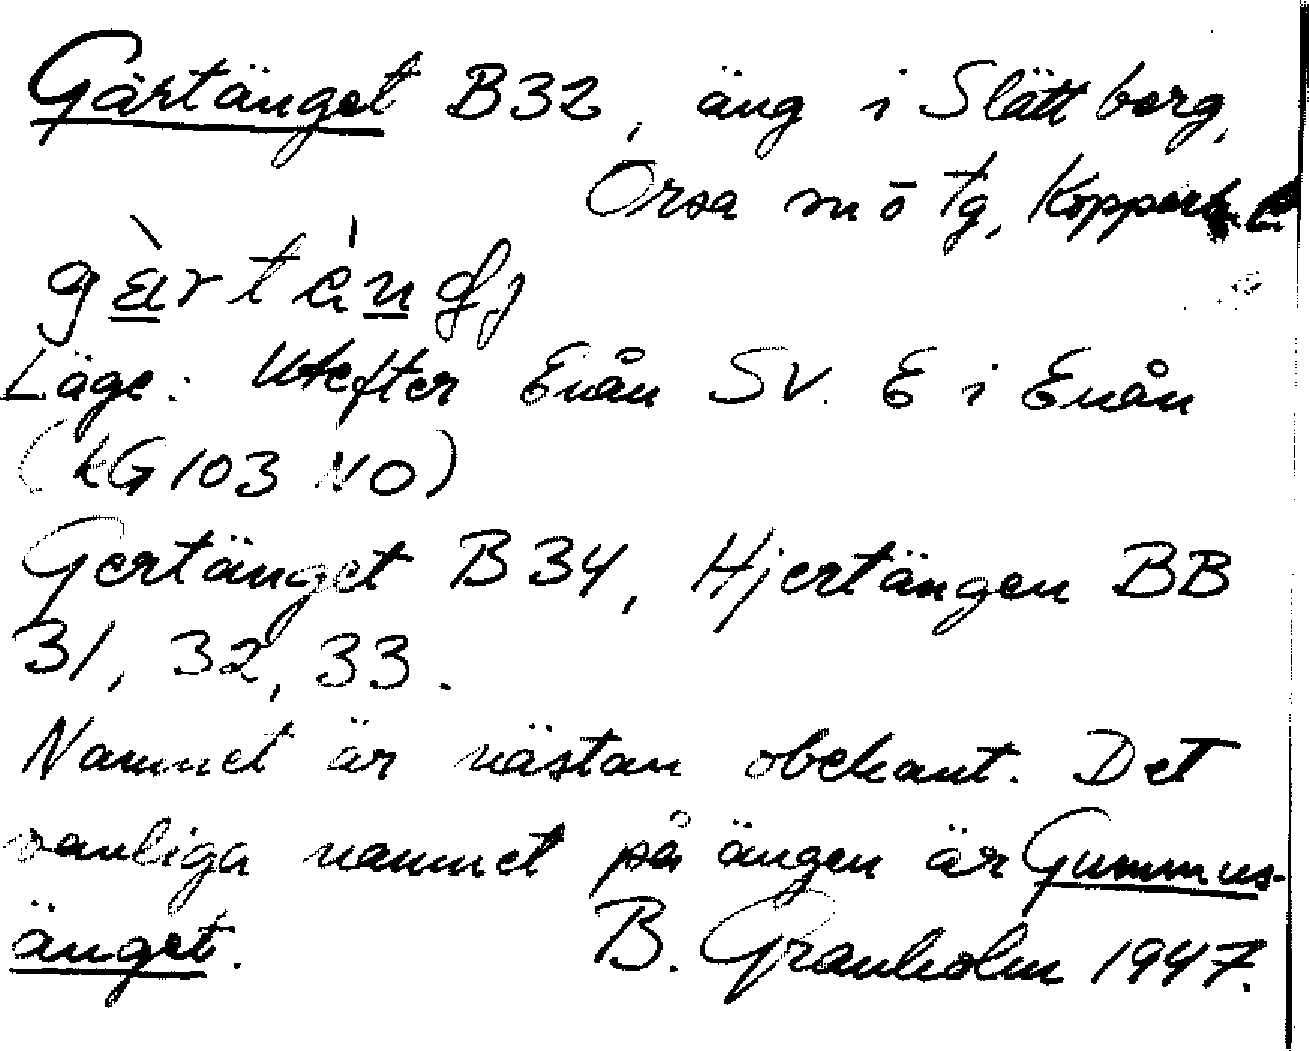 Gärtänget B32, äng i Slättberg,
Orsa sn ö tg, Kopparb. l.
Läge: Utefter Enån SV. E i Enån
(LG 103 NO)
Gertänget B34, Hjertängen BB
31, 32, 33.
Namnet är nästan obekant. Det
vanliga namnet på ängen är Gummus-
änget. B. Granholm 1947.